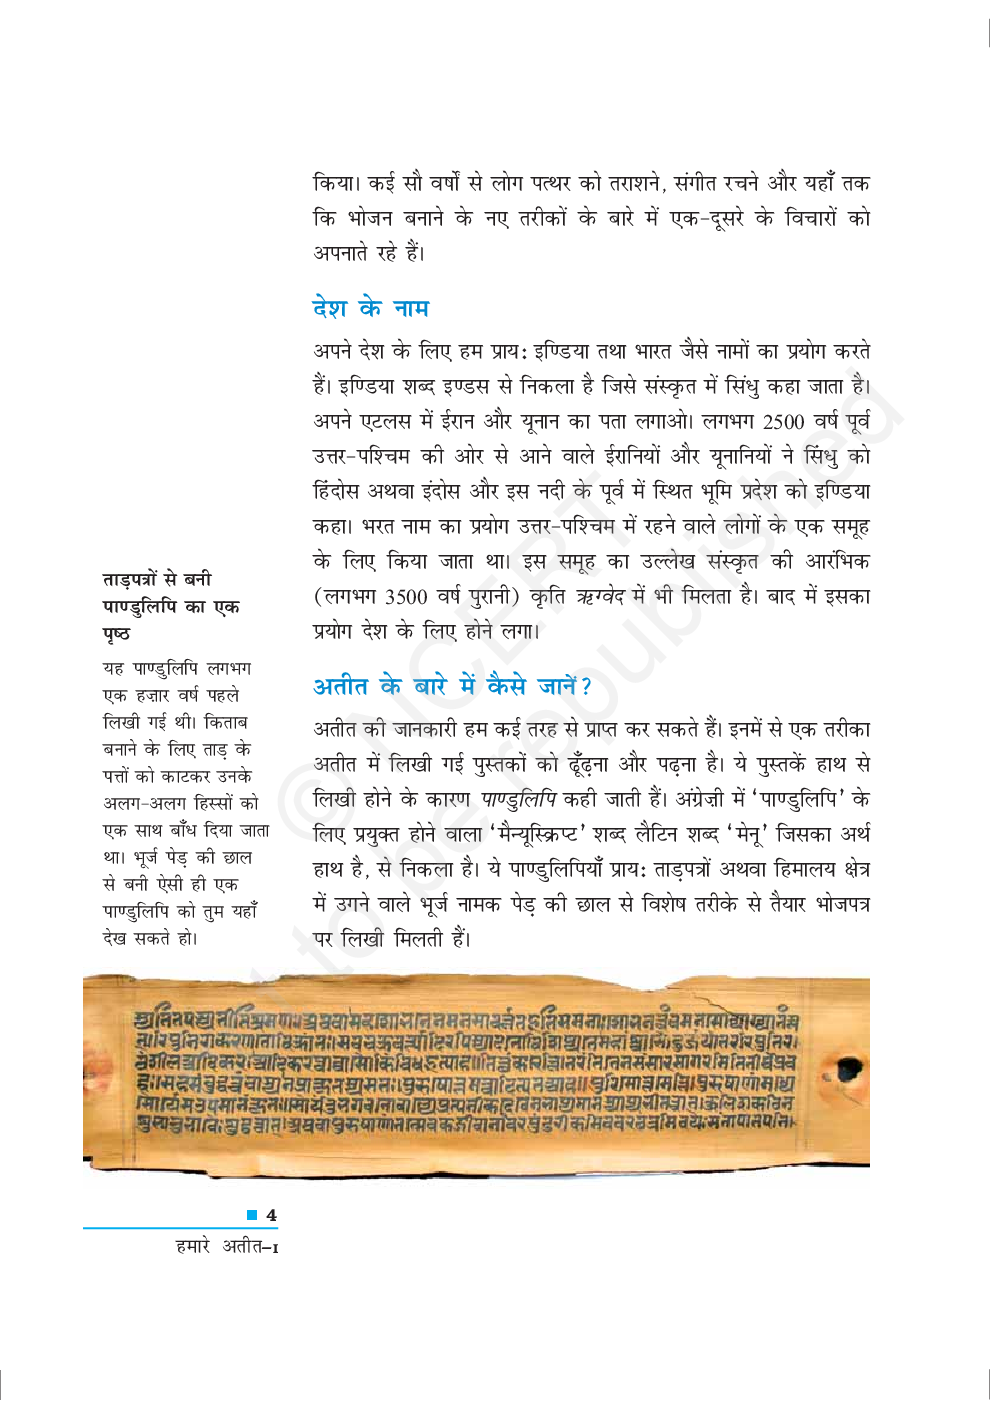 किया। कई सौ वर्षों से लोग पत्थर को तराशने, संगीत रचने और यहाँ तक
कि भोजन बनाने के नए तरीकों के बारे में एक-दूसरे के विचारों को
अपनाते रहे हैं।
देश के नाम
अपने देश के लिए हम प्राय: इण्डिया तथा भारत जैसे नामों का प्रयोग करते
हैं। इण्डिया शब्द इण्डस से निकला है जिसे संस्कृत में सिंधु कहा जाता है।
अपने एटलस में ईरान और यूनान का पता लगाओ। लगभग 2500 वर्ष पूर्व
उत्तर-पश्चिम की ओर से आने वाले ईरानियों और यूनानियों ने सिंधु को
हिंदोस अथवा इंदोस और इस नदी के पूर्व में स्थित भूमि प्रदेश को इण्डिया
कहा। भरत नाम का प्रयोग उत्तर-पश्चिम में रहने वाले लोगों के एक समूह
के लिए किया जाता था। इस समूह का उल्लेख संस्कृत की आरंभिक
(लगभग 3500 वर्ष पुरानी) कृति ऋग्वेद में भी मिलता है। बाद में इसका
प्रयोग देश के लिए होने लगा।
अतीत के बारे में कैसे जानें?
अतीत की जानकारी हम कई तरह से प्राप्त कर सकते हैं। इनमें से एक तरीका
अतीत में लिखी गई पुस्तकों को ढूँढ़ना और पढ़ना है। ये पुस्तकें हाथ से
लिखी होने के कारण पाण्डुलिपि कही जाती हैं। अंग्रेज़ी में ‘पाण्डुलिपि’ के
लिए प्रयुक्त होने वाला ‘मैन्यूस्क्रिप्ट’ शब्द लैटिन शब्द ‘मेनू’ जिसका अर्थ
हाथ है, से निकला है। ये पाण्डुलिपियाँ प्राय: ताड़पत्रों अथवा हिमालय क्षेत्र
में उगने वाले भूर्ज नामक पेड़ की छाल से विशेष तरीके से तैयार भोजपत्र
पर लिखी मिलती हैं।
ताड़पत्रों से बनी
पाण्डुलिपि का एक
पृष्ठ
यह पाण्डुलिपि लगभग
एक हज़ार वर्ष पहले
लिखी गई थी। किताब
बनाने के लिए ताड़ के
पत्तों को काटकर उनके
अलग-अलग हिस्सों को
एक साथ बाँध दिया जाता
था। भूर्ज पेड़ की छाल
से बनी ऐसी ही एक
पाण्डुलिपि को तुम यहाँ
देख सकते हो।
© NCERT
not to be republished
4
हमारे अतीत–I